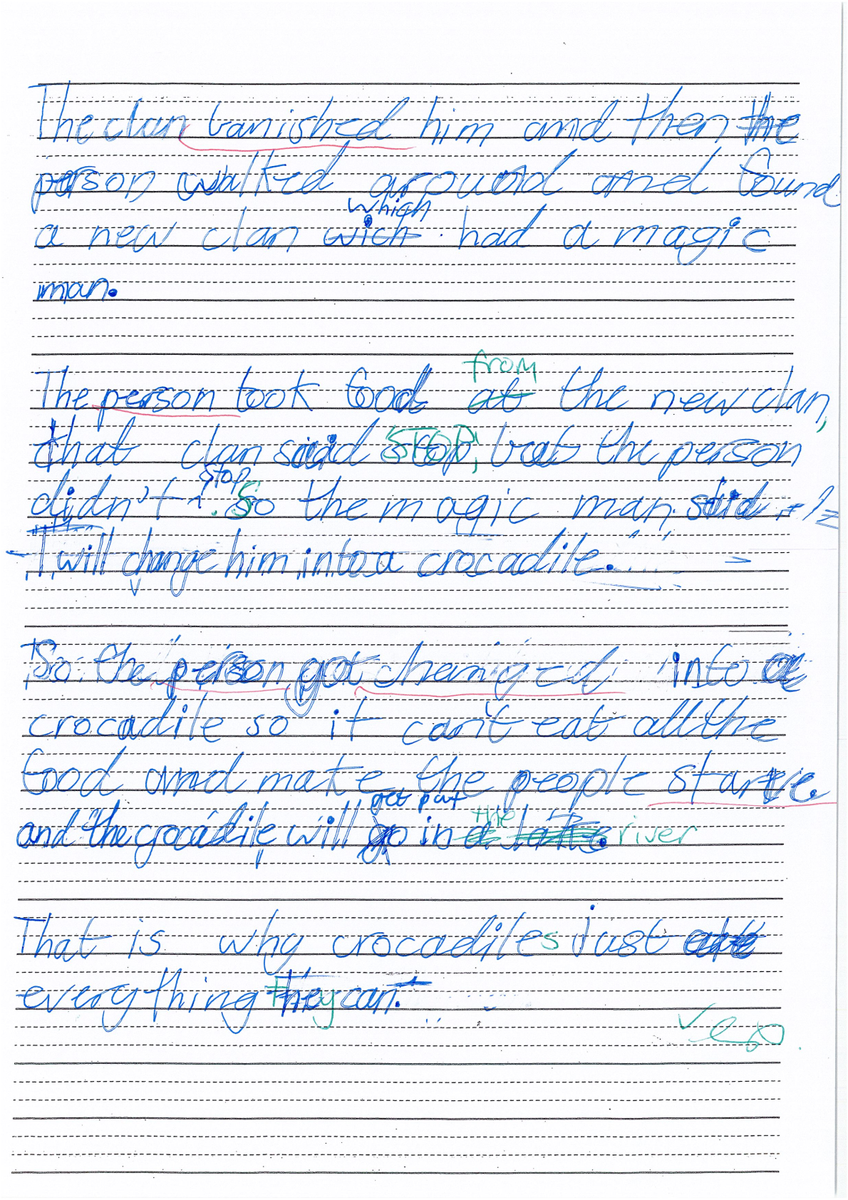 The clan banished him and then the
person walked around and found
which
a new clan wich had a magic
man.
from
The person took food at the new clan,
that clan said STOP, but the person
stop
didn't. So the magic man said
I will change him into a crocadile.
So the person got chaniged into a
crocadile so it can't eat all the
food and make the people starve
get put the
and the crocadile will go in a lake. river
That is why crocadiles just eat
everything they can.